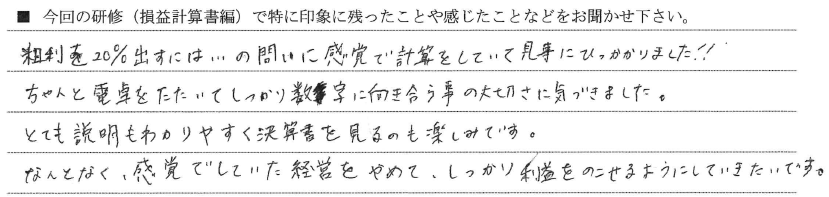 ■ 今回の研修（損益計算書編）で特に印象に残ったことや感じたことなどをお聞かせ下さい。
粗利を20%出すには…の問いに感覚で計算をしていて見事にひっかかりました!!
ちゃんと電卓をたたいてしっかり数字に向き合う事の大切さに気づきました。
とても説明もわかりやすく決算書を見るのも楽しみです。
なんとなく、感覚でしていた経営をやめて、しっかり利益をのこせるようにしていきたいです。